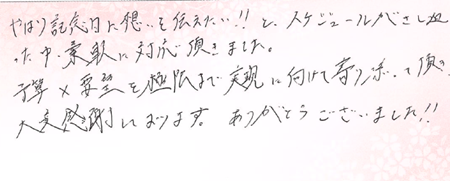 やはり記念日に想いを伝えたい!!と、スケジュールがさし迫
った中、柔軟に対応頂きました。
予算×要望を極限まで実現に付けて寄りそって頂き
大変感謝しております。ありがとうございました!!